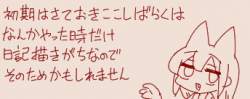 初期はさておきここしばらくは
なんかやった時だけ
日記描きがちなので
そのためかもしれません